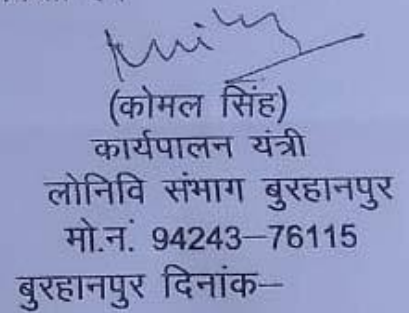 (कोमल सिंह)
कार्यपालन यंत्री
लोनिवि संभाग बुरहानपुर
मो.नं. 94243–76115
बुरहानपुर दिनांक–